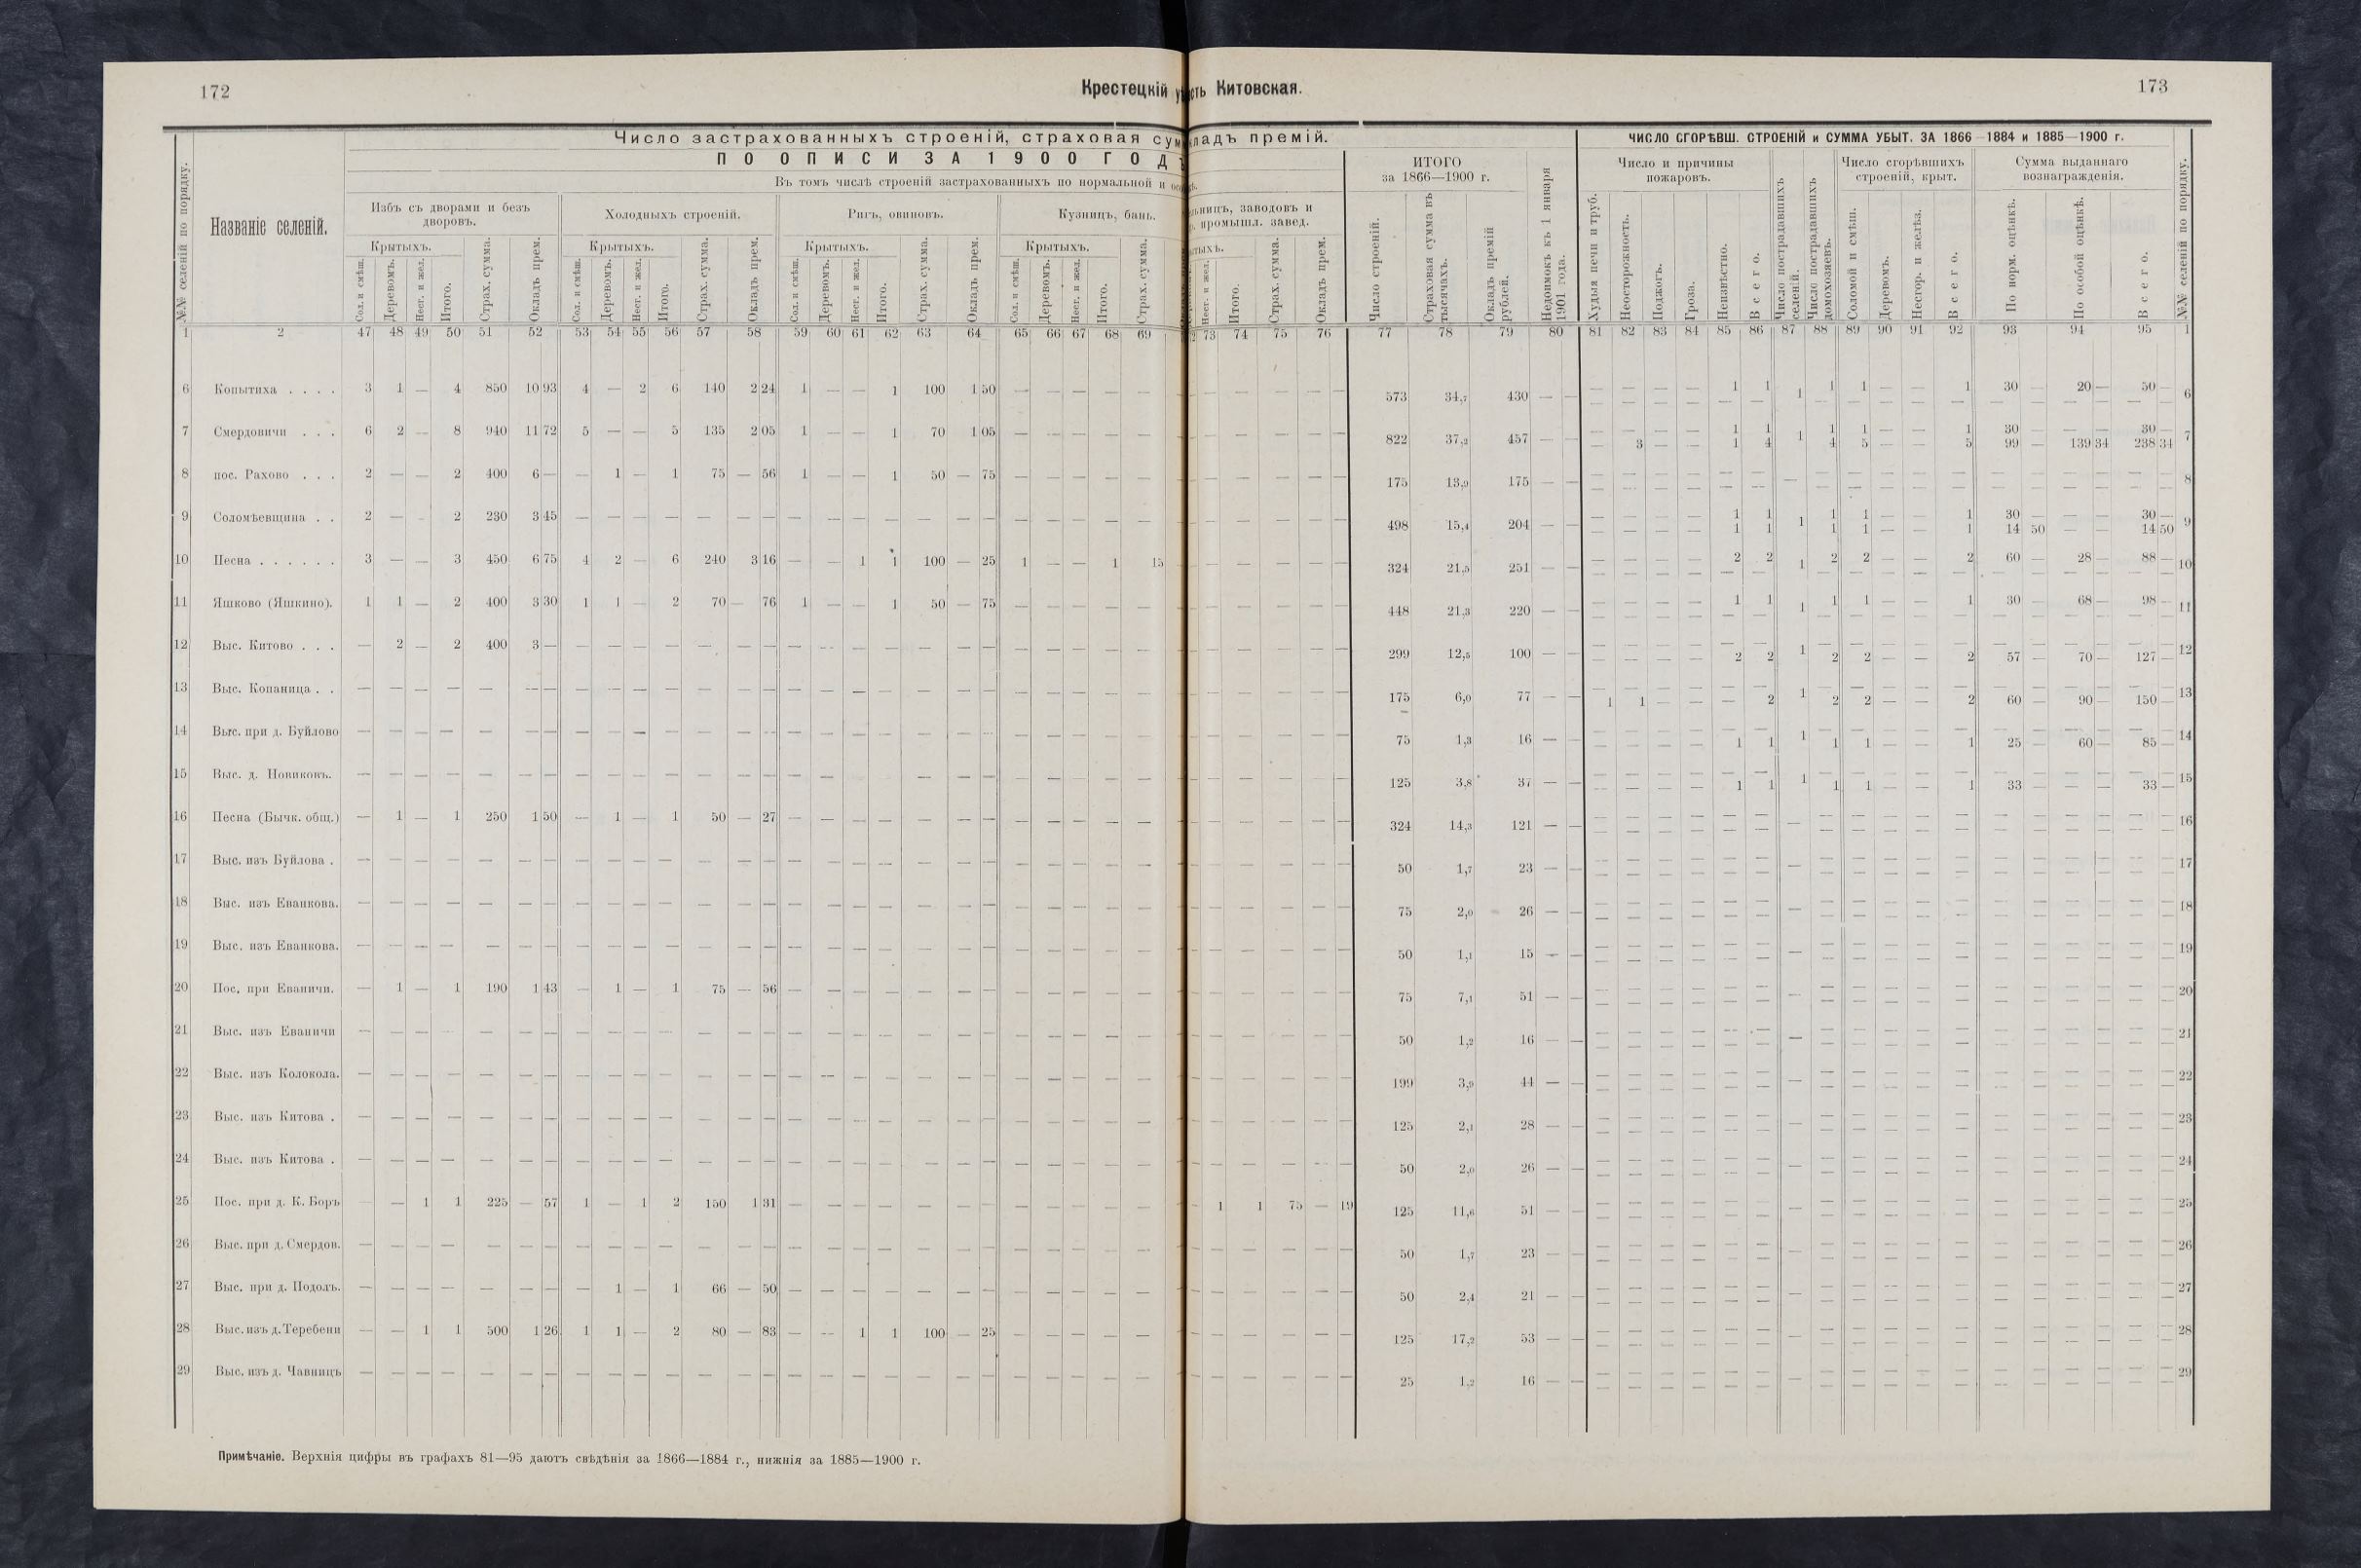 172
Крестецкій у
сть Китовская.
173
Число застрахованныхъ строеній, страховая сум
ладъ премій.
ПО ОПИСИ ЗА 1900 ГОД
Въ томъ числѣ строеній застрахованныхъ по нормальной и
№№ селеній по порядку.
Названіе селеній.
Избъ съ дворами и безъ
дворовъ.
Холодныхъ строеній.
Ригъ, овиновъ.
Кузницъ, бань.
ьницъ, заводовъ и
промышл. завед.
Крытыхъ. Крытыхъ. Крытыхъ. Крытыхъ.
Сол. и смѣш. Деревомъ. Несг. и жел. Итого. Страх. сумма. Окладъ прем.
Сол. и смѣш. Деревомъ. Несг. и жел. Итого. Страх. сумма. Окладъ прем.
Сол. и смѣш. Деревомъ. Несг. и жел. Итого. Страх. сумма. Окладъ прем.
Сол. и смѣш. Деревомъ. Несг. и жел. Итого. Страх. сумма.
Несг. и жел. Итого. Страх. сумма. Окладъ прем.
ИТОГО
за 1866—1900 г.
Число строеній.
Страховая сумма въ
тысячахъ.
Окладъ премій
рублей.
Недоимокъ къ 1 января
1901 года.
ЧИСЛО СГОРѢВШ. СТРОЕНІЙ и СУММА УБЫТ. ЗА 1866—1884 и 1885—1900 г.
Число и причины
пожаровъ.
Худыя печи и труб. Неосторожность. Поджогъ. Гроза. Неизвѣстно. Всего.
Число пострадавшихъ
селеній.
Число пострадавшихъ
домохозяевъ.
Число сгорѣвшихъ
строеній, крыт.
Соломой и смѣш. Деревомъ. Несгор. и желѣз. Всего.
Сумма выданнаго
вознагражденія.
По норм. оцѣнкѣ. По особой оцѣнкѣ. Всего.
№№ селеній по порядку.
1 2 47 48 49 50 51 52 53 54 55 56 57 58 59 60 61 62 63 64 65 66 67 68 69 73 74 75 76 77 78 79 80 81 82 83 84 85 86 87 88 89 90 91 92 93 94 95 1
6 Копытиха . . . . 3 1 — 4 850 10 93 4 — 2 6 140 2 24 1 — — 1 100 1 50 — — — — — — — — — 573 34,7 430 — — — — — — 1 1 1 1 1 — — 1 30 — 20 — 50 — 6
7 Смердовичи . . . 6 2 — 8 940 11 72 5 — — 5 135 2 05 1 — — 1 70 1 05 — — — — — — — — — 822 37,2 457 — — — — — — 1 1 1 1 1 — — 1 30 — — — 30 — 7
— 3 — — 1 4 4 5 — — 5 99 — 139 34 238 34
8 пос. Рахово . . . 2 — — 2 400 6 — — 1 — 1 75 — 56 1 — — 1 50 — 75 — — — — — — — — — 175 13,9 175 — — — — — — — — — — — — — — — — — — — — 8
9 Соломѣевщина . . 2 — — 2 230 3 45 — — — — — — — — — — — — — — — — — — — — — — 498 15,4 204 — — — — — — 1 1 1 1 1 — — 1 30 — — — 30 — 9
1 1 1 1 — — 1 14 50 — — 14 50
10 Песна . . . . . . 3 — — 3 450 6 75 4 2 — 6 240 3 16 — — 1 1 100 — 25 1 — — 1 15 — — — — 324 21,5 251 — — — — — — 2 2 1 2 2 — — 2 60 — 28 — 88 — 10
11 Яшково (Яшкино). 1 1 — 2 400 3 30 1 1 — 2 70 — 76 1 — — 1 50 — 75 — — — — — — — — — 448 21,3 220 — — — — — — 1 1 1 1 1 — — 1 30 — 68 — 98 — 11
12 Выс. Китово . . . — 2 — 2 400 3 — — — — — — — — — — — — — — — — — — — — — — — 299 12,5 100 — — — — — — 2 2 1 2 2 — — 2 57 — 70 — 127 — 12
13 Выс. Копаница . . — — — — — — — — — — — — — — — — — — — — — — — — — — — — — 175 6,0 77 — — 1 1 — — — 2 1 2 2 — — 2 60 — 90 — 150 — 13
14 Выс. при д. Буйлово — — — — — — — — — — — — — — — — — — — — — — — — — — — — — 75 1,3 16 — — — — — — 1 1 1 1 1 — — 1 25 — 60 — 85 — 14
15 Выс. д. Новиковъ. — — — — — — — — — — — — — — — — — — — — — — — — — — — — — 125 3,8 37 — — — — — — 1 1 1 1 1 — — 1 33 — — — 33 — 15
16 Песна (Бычк. общ.) — 1 — 1 250 1 50 — 1 — 1 50 — 27 — — — — — — — — — — — — — — — 324 14,3 121 — — — — — — — — — — — — — — — — — — — — 16
17 Выс. изъ Буйлова . — — — — — — — — — — — — — — — — — — — — — — — — — — — — — 50 1,7 23 — — — — — — — — — — — — — — — — — — — — 17
18 Выс. изъ Еванкова. — — — — — — — — — — — — — — — — — — — — — — — — — — — — — 75 2,0 26 — — — — — — — — — — — — — — — — — — — — 18
19 Выс. изъ Еванкова. — — — — — — — — — — — — — — — — — — — — — — — — — — — — — 50 1,1 15 — — — — — — — — — — — — — — — — — — — — 19
20 Пос. при Еваничи. — 1 — 1 190 1 43 — 1 — 1 75 — 56 — — — — — — — — — — — — — — — 75 7,1 51 — — — — — — — — — — — — — — — — — — — — 20
21 Выс. изъ Еваничи — — — — — — — — — — — — — — — — — — — — — — — — — — — — — 50 1,2 16 — — — — — — — — — — — — — — — — — — — — 21
22 Выс. изъ Колокола. — — — — — — — — — — — — — — — — — — — — — — — — — — — — — 199 3,9 44 — — — — — — — — — — — — — — — — — — — — 22
23 Выс. изъ Китова . — — — — — — — — — — — — — — — — — — — — — — — — — — — — — 125 2,1 28 — — — — — — — — — — — — — — — — — — — — 23
24 Выс. изъ Китова . — — — — — — — — — — — — — — — — — — — — — — — — — — — — — 50 2,0 26 — — — — — — — — — — — — — — — — — — — — 24
25 Пос. при д. К. Боръ — — 1 1 225 — 57 1 — 1 2 150 1 31 — — — — — — — — — — — 1 1 75 — 19 125 11,6 51 — — — — — — — — — — — — — — — — — — — — 25
26 Выс. при д. Смердов. — — — — — — — — — — — — — — — — — — — — — — — — — — — — — 50 1,7 23 — — — — — — — — — — — — — — — — — — — — 26
27 Выс. при д. Подолъ. — — — — — — — 1 — 1 66 — 50 — — — — — — — — — — — — — — — 50 2,4 21 — — — — — — — — — — — — — — — — — — — — 27
28 Выс. изъ д. Теребени — — 1 1 500 1 26 1 1 — 2 80 — 83 — — 1 1 100 — 25 — — — — — — — — — 125 17,2 53 — — — — — — — — — — — — — — — — — — — — 28
29 Выс. изъ д. Чавницъ — — — — — — — — — — — — — — — — — — — — — — — — — — — — — 25 1,2 16 — — — — — — — — — — — — — — — — — — — — 29
Примѣчаніе. Верхнія цифры въ графахъ 81—95 даютъ свѣдѣнія за 1866—1884 г., нижнія за 1885—1900 г.